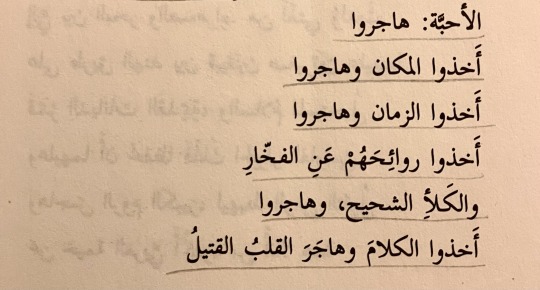 الأحبَّة: هاجروا
أَخذوا المكان وهاجروا
أَخذوا الزمان وهاجروا
أَخذوا روائِحَهُمْ عَنِ الفخّارِ
والكَلأِ الشحيح، وهاجروا
أَخذوا الكلامَ وهاجَرَ القلبُ القتيلُ